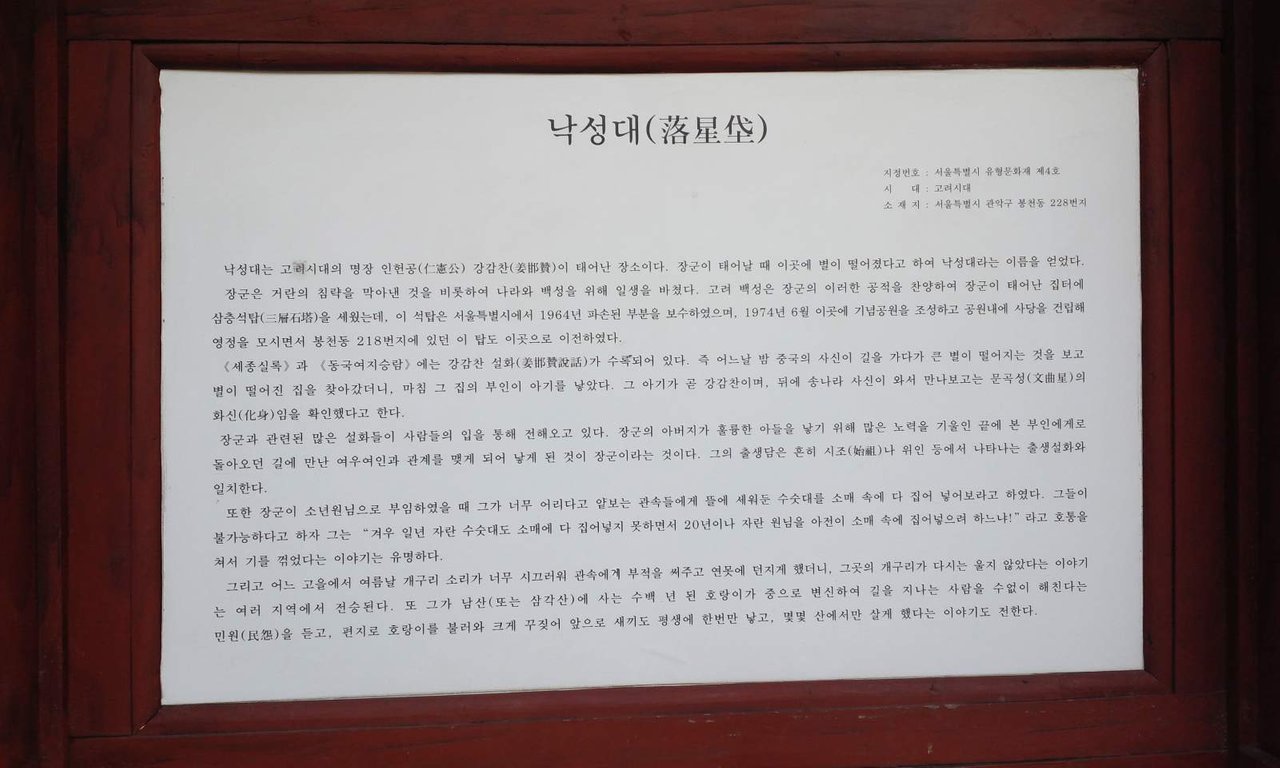 낙성대(落星垈)
지정번호 : 서울특별시 유형문화재 제4호
시 대 : 고려시대
소 재 지 : 서울특별시 관악구 봉천동 228번지
낙성대는 고려시대의 명장 인헌공(仁憲公) 강감찬(姜邯贊)이 태어난 장소이다. 장군이 태어날 때 이곳에 별이 떨어졌다고 하여 낙성대라는 이름을 얻었다.
장군은 거란의 침략을 막아낸 것을 비롯하여 나라와 백성을 위해 일생을 바쳤다. 고려 백성은 장군의 이러한 공적을 찬양하여 장군이 태어난 집터에
삼층석탑(三層石塔)을 세웠는데, 이 석탑은 서울특별시에서 1964년 파손된 부분을 보수하였으며, 1974년 6월 이곳에 기념공원을 조성하고 공원내에 사당을 건립해
영정을 모시면서 봉천동 218번지에 있던 이 탑도 이곳으로 이전하였다.
《세종실록》과 《동국여지승람》에는 강감찬 설화(姜邯贊說話)가 수록되어 있다. 즉 어느날 밤 중국의 사신이 길을 가다가 큰 별이 떨어지는 것을 보고
별이 떨어진 집을 찾아갔더니, 마침 그 집의 부인이 아기를 낳았다. 그 아기가 곧 강감찬이며, 뒤에 송나라 사신이 와서 만나보고는 문곡성(文曲星)의
화신(化身)임을 확인했다고 한다.
장군과 관련된 많은 설화들이 사람들의 입을 통해 전해오고 있다. 장군의 아버지가 훌륭한 아들을 낳기 위해 많은 노력을 기울인 끝에 본 부인에게로
돌아오던 길에 만난 여우여인과 관계를 맺게 되어 낳게 된 것이 장군이라는 것이다. 그의 출생담은 흔히 시조(始祖)나 위인 등에서 나타나는 출생설화와
일치한다.
또한 장군이 소년원님으로 부임하였을 때 그가 너무 어리다고 얕보는 관속들에게 뜰에 세워둔 수숫대를 소매 속에 다 집어 넣어보라고 하였다. 그들이
불가능하다고 하자 그는 “겨우 일년 자란 수숫대도 소매에 다 집어넣지 못하면서 20년이나 자란 원님을 아전이 소매 속에 집어넣으려 하느냐!” 라고 호통을
쳐서 기를 꺾었다는 이야기는 유명하다.
그리고 어느 고을에서 여름날 개구리 소리가 너무 시끄러워 관속에게 부적을 써주고 연못에 던지게 했더니, 그곳의 개구리가 다시는 울지 않았다는 이야기
는 여러 지역에서 전승된다. 또 그가 남산(또는 삼각산)에 사는 수백 년 된 호랑이가 중으로 변신하여 길을 지나는 사람을 수없이 해친다는
민원(民怨)을 듣고, 편지로 호랑이를 불러와 크게 꾸짖어 앞으로 새끼도 평생에 한번만 낳고, 몇몇 산에서만 살게 했다는 이야기도 전한다.